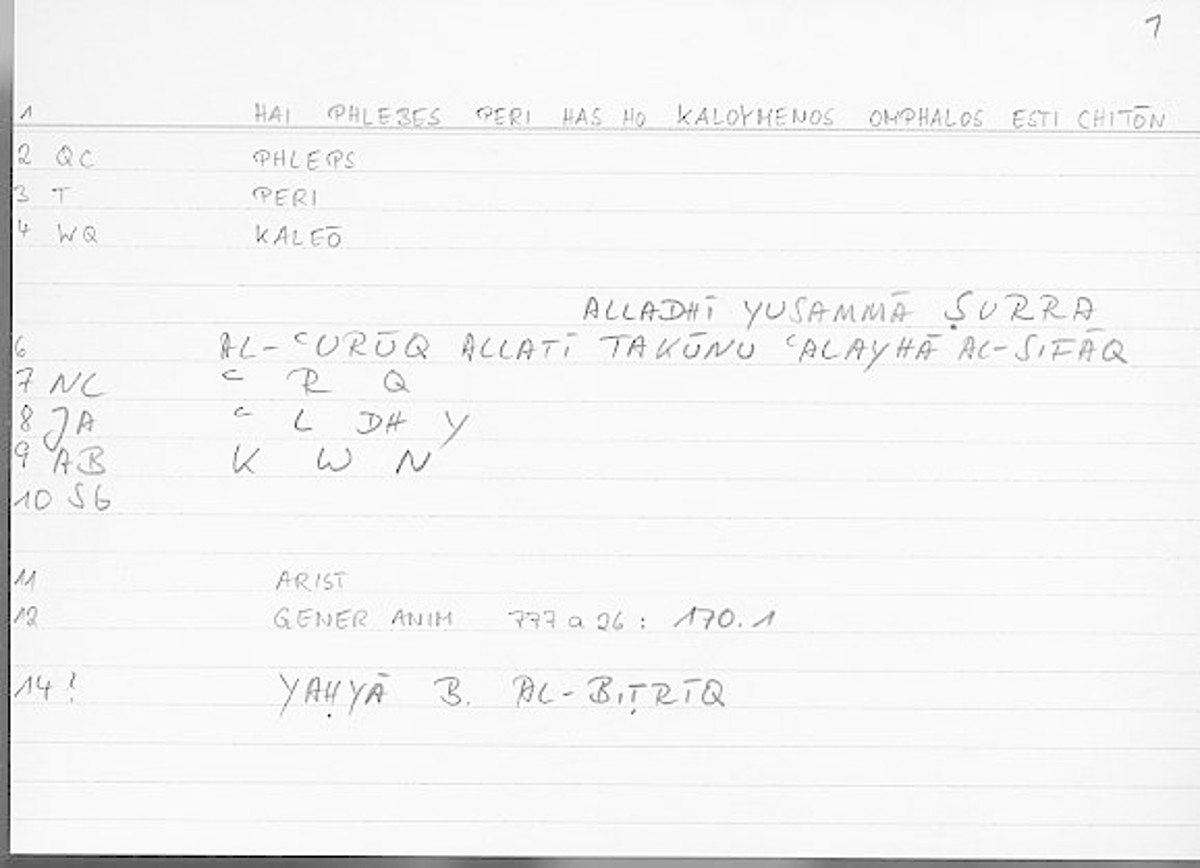 1
1 HAI PHLEBES PERI HAS HO KALOYMENOS OMPHALOS ESTI CHITŌN
2 QC PHLEPS
3 T PERI
4 WQ KALEŌ
ALLADHĪ YUSAMMĀ ṢURRA
6 AL-ʿURŪQ ALLATĪ TAKŪNU ʿALAYHĀ AL-SIFĀQ
7 NC ʿ R Q
8 JA ʿ L DH Y
9 AB K W N
10 SG
11 ARIST
12 GENER ANIM 777 a 26 : 170.1
14 ! YAḤYĀ B. AL-BIṬRĪQ